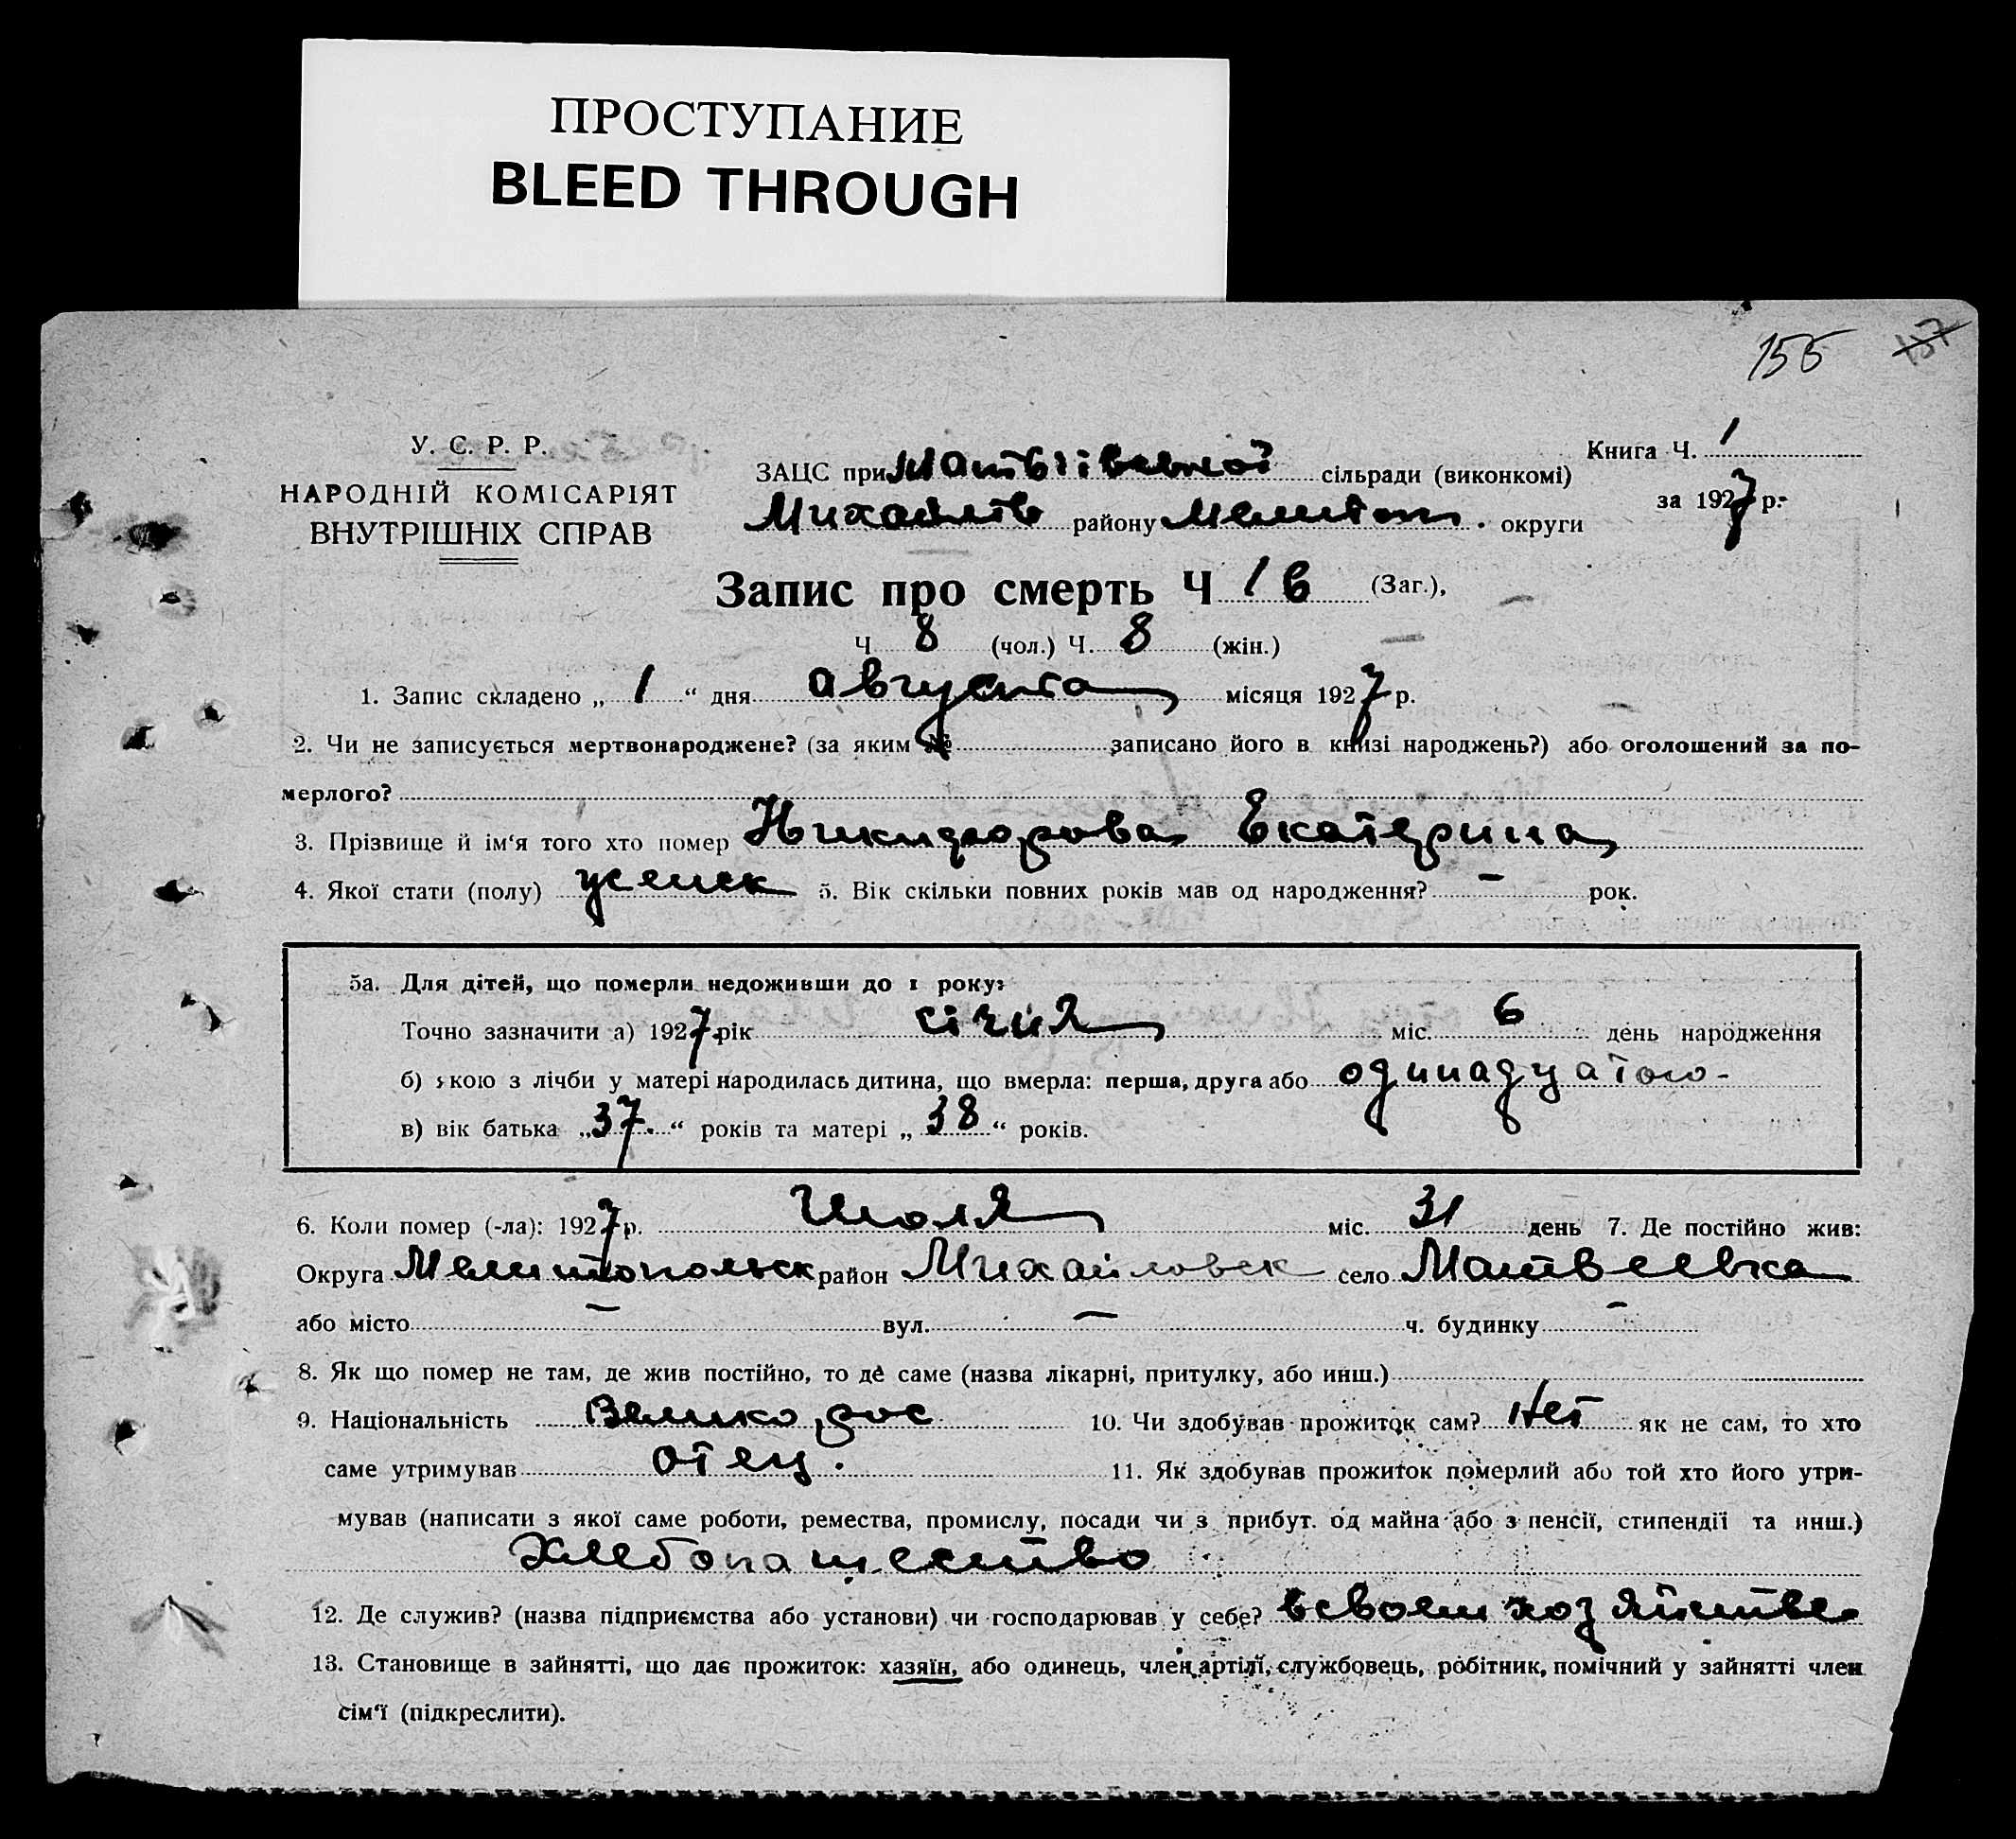 ПРОСТУПАНИЕ
BLEED THROUGH
155 157
У. С. Р. Р.
НАРОДНІЙ КОМІСАРІЯТ
ВНУТРІШНІХ СПРАВ
ЗАЦС при Матвіївській сільради (виконкомі)
Михайлів району Мелитоп. округи
Книга Ч. 1
за 1927 р.
Запис про смерть Ч 16 (Заг.),
Ч 8 (чол.) Ч. 8 (жін.)
1. Запис складено „ 1 “ дня августа місяця 1927 р.
2. Чи не записується мертвонароджене? (за яким № записано його в книзі народжень?) або оголошений за по-
мерлого?
3. Прізвище й ім‘я того хто помер Никифорова Екатерина
4. Якої стати (полу) женск 5. Вік скільки повних років мав од народження? — рок.
5а. Для дітей, що померли недоживши до 1 року:
Точно зазначити а) 1927 рік січня міс. 6 день народження
б) якою з лічби у матері народилась дитина, що вмерла: перша, друга або одинадцатою-
в) вік батька „ 37. “ років та матері „ 38 “ років.
6. Коли помер (-ла): 1927 р. Июля міс. 31 день 7. Де постійно жив:
Округа Мелитопольск район Михайловск село Матвеевка
або місто — вул. — ч. будинку —
8. Як що помер не там, де жив постійно, то де саме (назва лікарні, притулку, або инш.)
9. Національність Великорос 10. Чи здобував прожиток сам? Нет як не сам, то хто
саме утримував отец. 11. Як здобував прожиток померлий або той хто його утри-
мував (написати з якої саме роботи, ремества, промислу, посади чи з прибут. од майна або з пенсії, стипендії та инш.)
Хлебопашество
12. Де служив? (назва підприємства або установи) чи господарював у себе? в своем хозяйстве
13. Становище в зайнятті, що дає прожиток: хазяїн, або одинець, член артілі, службовець, робітник, помічний у зайнятті член
сім‘ї (підкреслити).